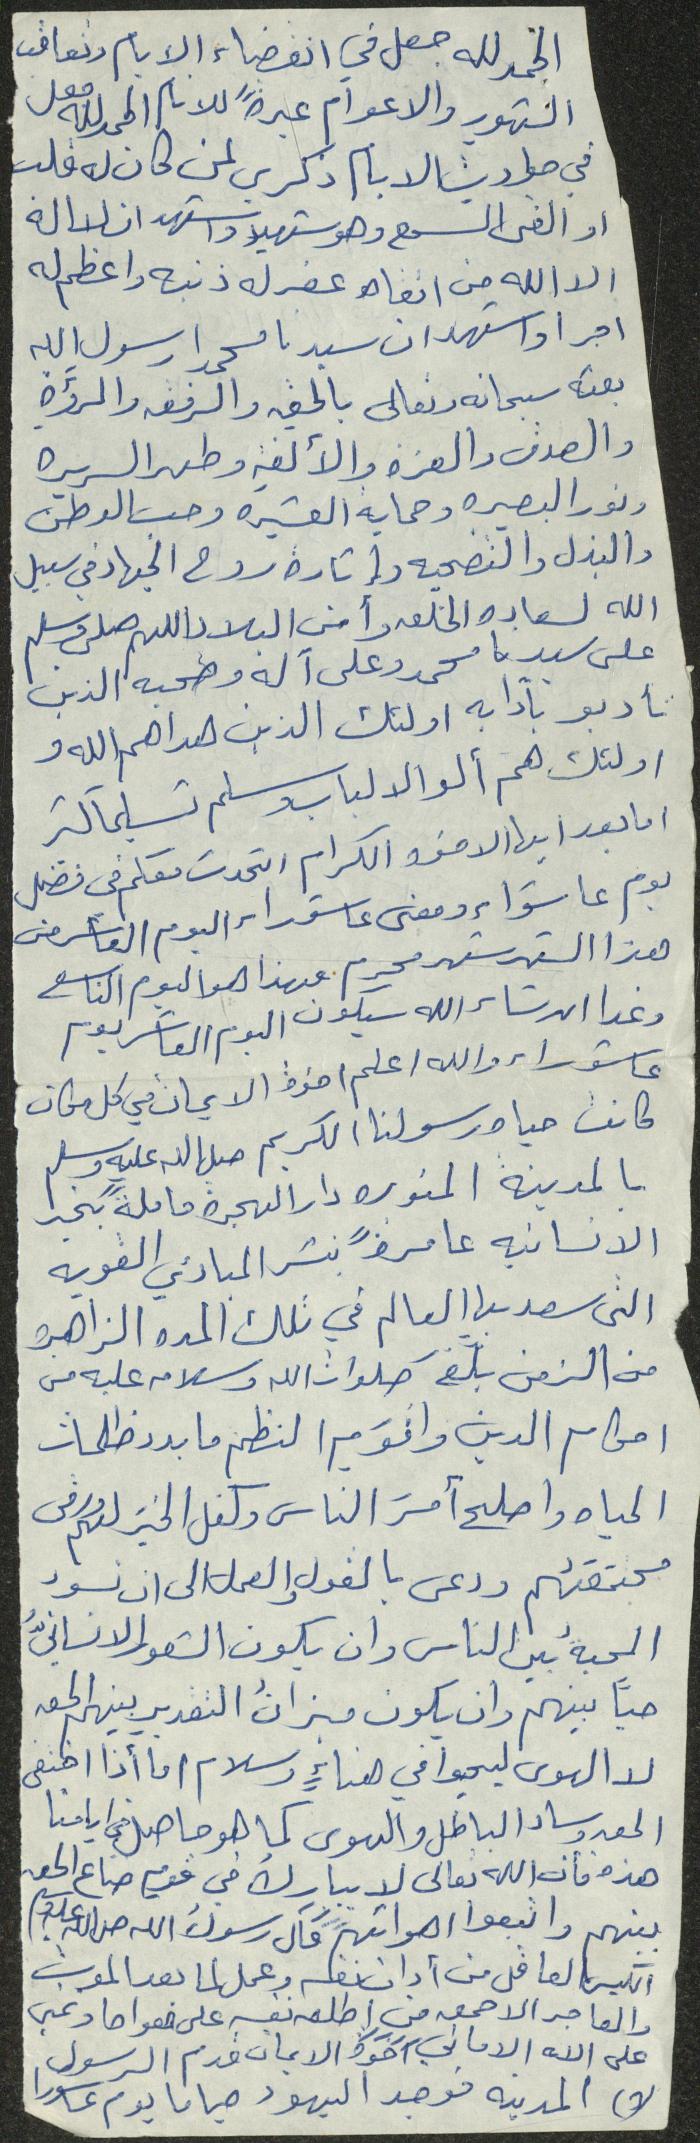 الحمد لله جعل في انقضاء الايام وتعاقب
الشهور والاعوام عبرةً للانام الحمد لله جعل
في حوادث الايام ذكرى لمن كان له قلب
او القى السمع وهو شهيد واشهد ان لا اله
الا الله من اتقاه غفر له ذنبه واعظم له
اجرا واشهد ان سيدنا محمدا رسول الله
بعثه سبحانه وتعالى بالحق والرفق والمروءة
والصدق والعزة والألفة وطهر السريره
ونور البصيره وحماية العشيره وحب الوطن
والبذل والتضحيه وإثارة روح الجهاد في سبيل
الله لسعاده الخلق وأمن البلاد اللهم صلى وسلم
على سيدنا محمد وعلى آله وصحبه الذين
تأدبو بآدابه اولئك الذين هداهم الله و
اولئك هم ألو الالباب وسلم تسليما كثر
اما بعد ايها الاخوه الكرام اتحدث معكم في فضل
يوم عاشوراء ومعنى عاشوراء اليوم العاشر من
هذا الشهر شهر محرم فهذا هو اليوم التاسع
وغدا ان شاء الله سيكون اليوم العاشر يوم
عاشوراء والله اعلم اخوة الايمان في كل مكان
كانت حياه رسولنا الكريم صلى الله عليه وسلم
بالمدينة المنوره دار الهجرة حاملةً بخير
الانسانيه عامرةً بنشر المبادئي القويه
التى سعد بها العالم في تلك المده الزاهره
من الزمن بلّغ صلوات الله وسلامه عليه من
احكام الدين واقوَم النظم ما بدد ظلمات
الحياه واصلح أمرَ الناس وكفل الخيَر لهم ورقى
مجتمعَهم ودعى بالقول والعمل الى ان تسود
المحبةُ بين الناس وان يكون الشعور الانسانيُّ
حياً بينهم وان يكون ميزانُ التقدير بينهم الحق
لا الهوى ليحيوا في هناءٍ وسلام اما أذا اختفى
الحق وساد الباطل والهوى كما هو حاصل في ايامنا
هذه فأن الله تعالى لا يبارك في قوم ضاع الحق
بينهم واتبعوا اهوائهم قال رسولُ الله صلى الله عليه وسلم
الكيس العاقل من أدان نفسه وعمل لما بعد الموت
والعاجر الاحمق من اطلق نفسه على هواها وتمنى
على الله الاماني اخوة الايمان قدم الرسول
المدينه فوجد اليهود صياما يوم عاشورا